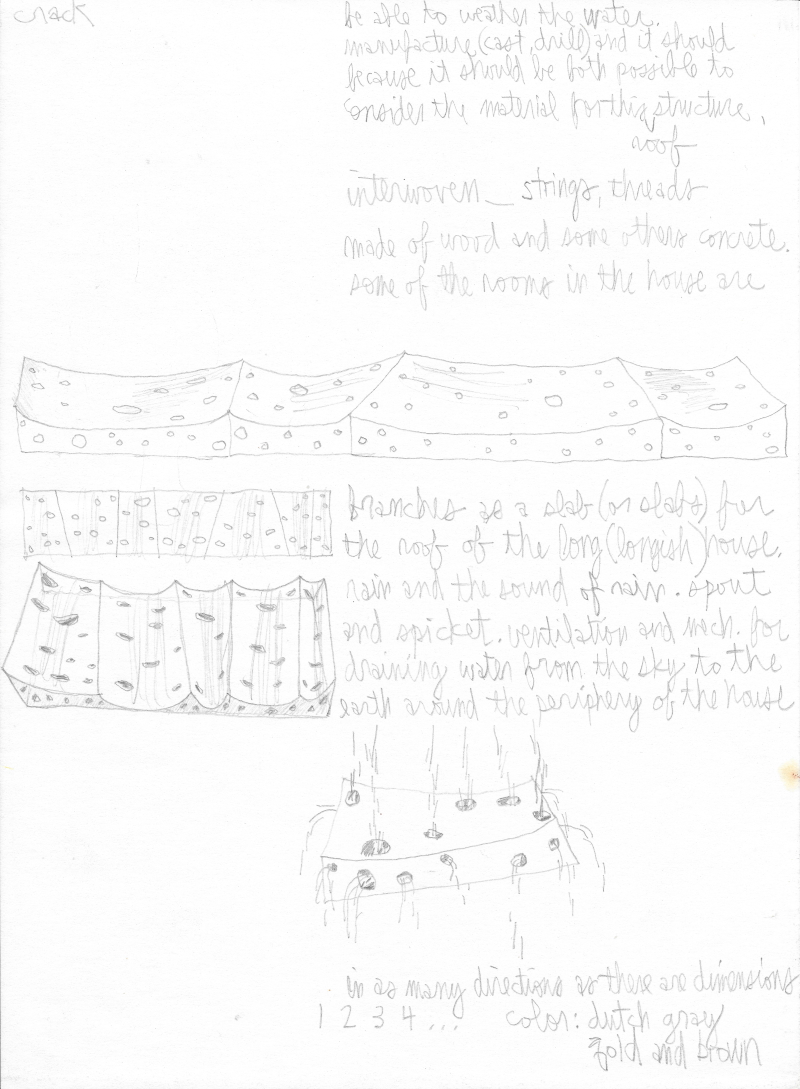 crack
be able to weather the water.
manufacture (cast, drill) and it should
because it should be both possible to
consider the material for this structure,
roof
interwoven_ strings, threads
made of wood and some others concrete.
some of the rooms in the house are
branches as a slab (or slabs) for
the roof of the long (longish) house.
rain and the sound of rain. spout
and spicket. ventilation and mech. for
draining water from the sky to the
earth around the periphery of the house
in as many directions as there are dimensions
1 2 3 4 ... color: dutch gray
gold and brown